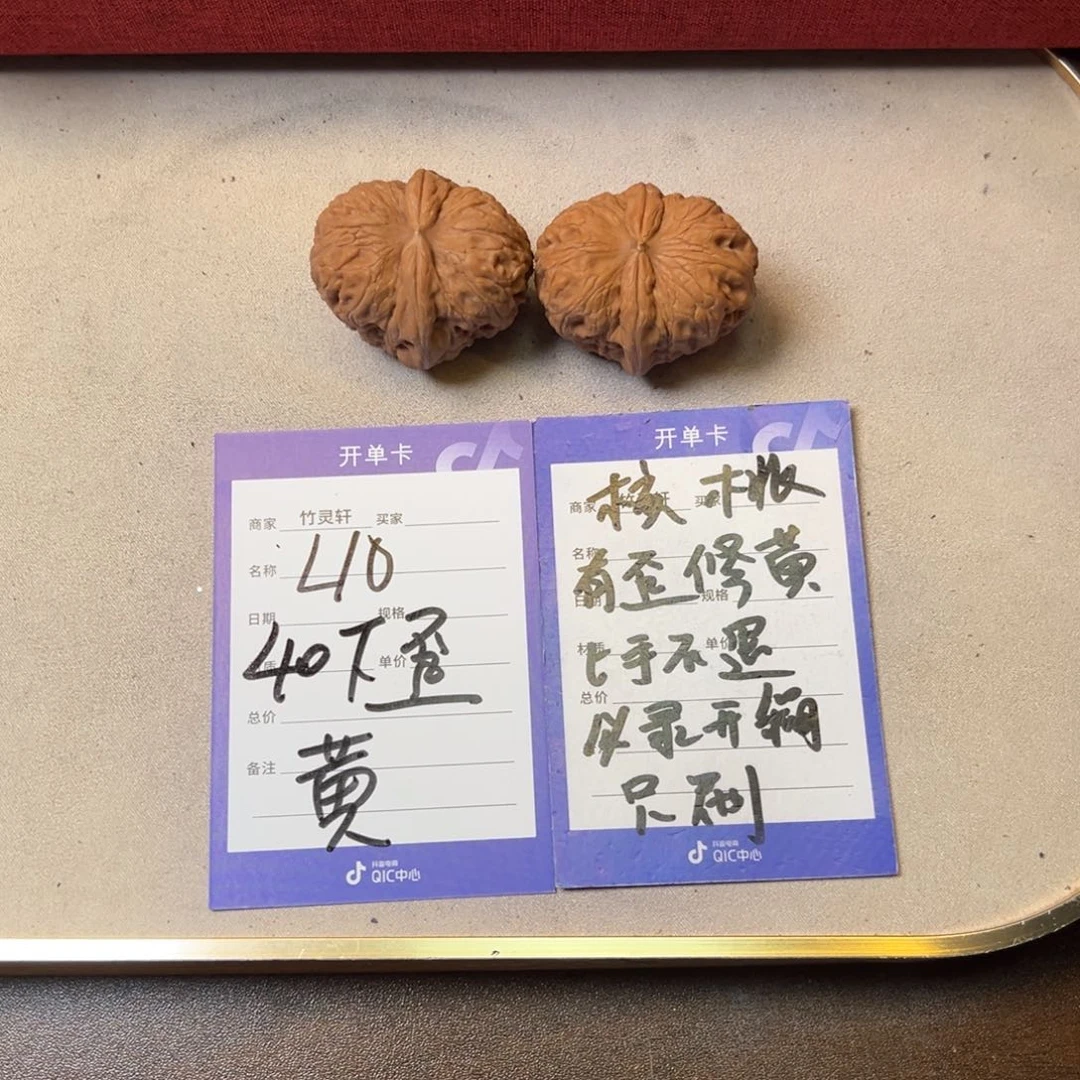 开单卡
商家 竹灵轩 买家
名称 410
日期 规格
40下歪
材质 单价
总价
备注 黄
抖音电商
QIC中心
开单卡
商家 买家
核桃
名称
有歪修黄
日期 规格
上手不退
材质 单价
总价
必录开箱
只刷
抖音电商
QIC中心